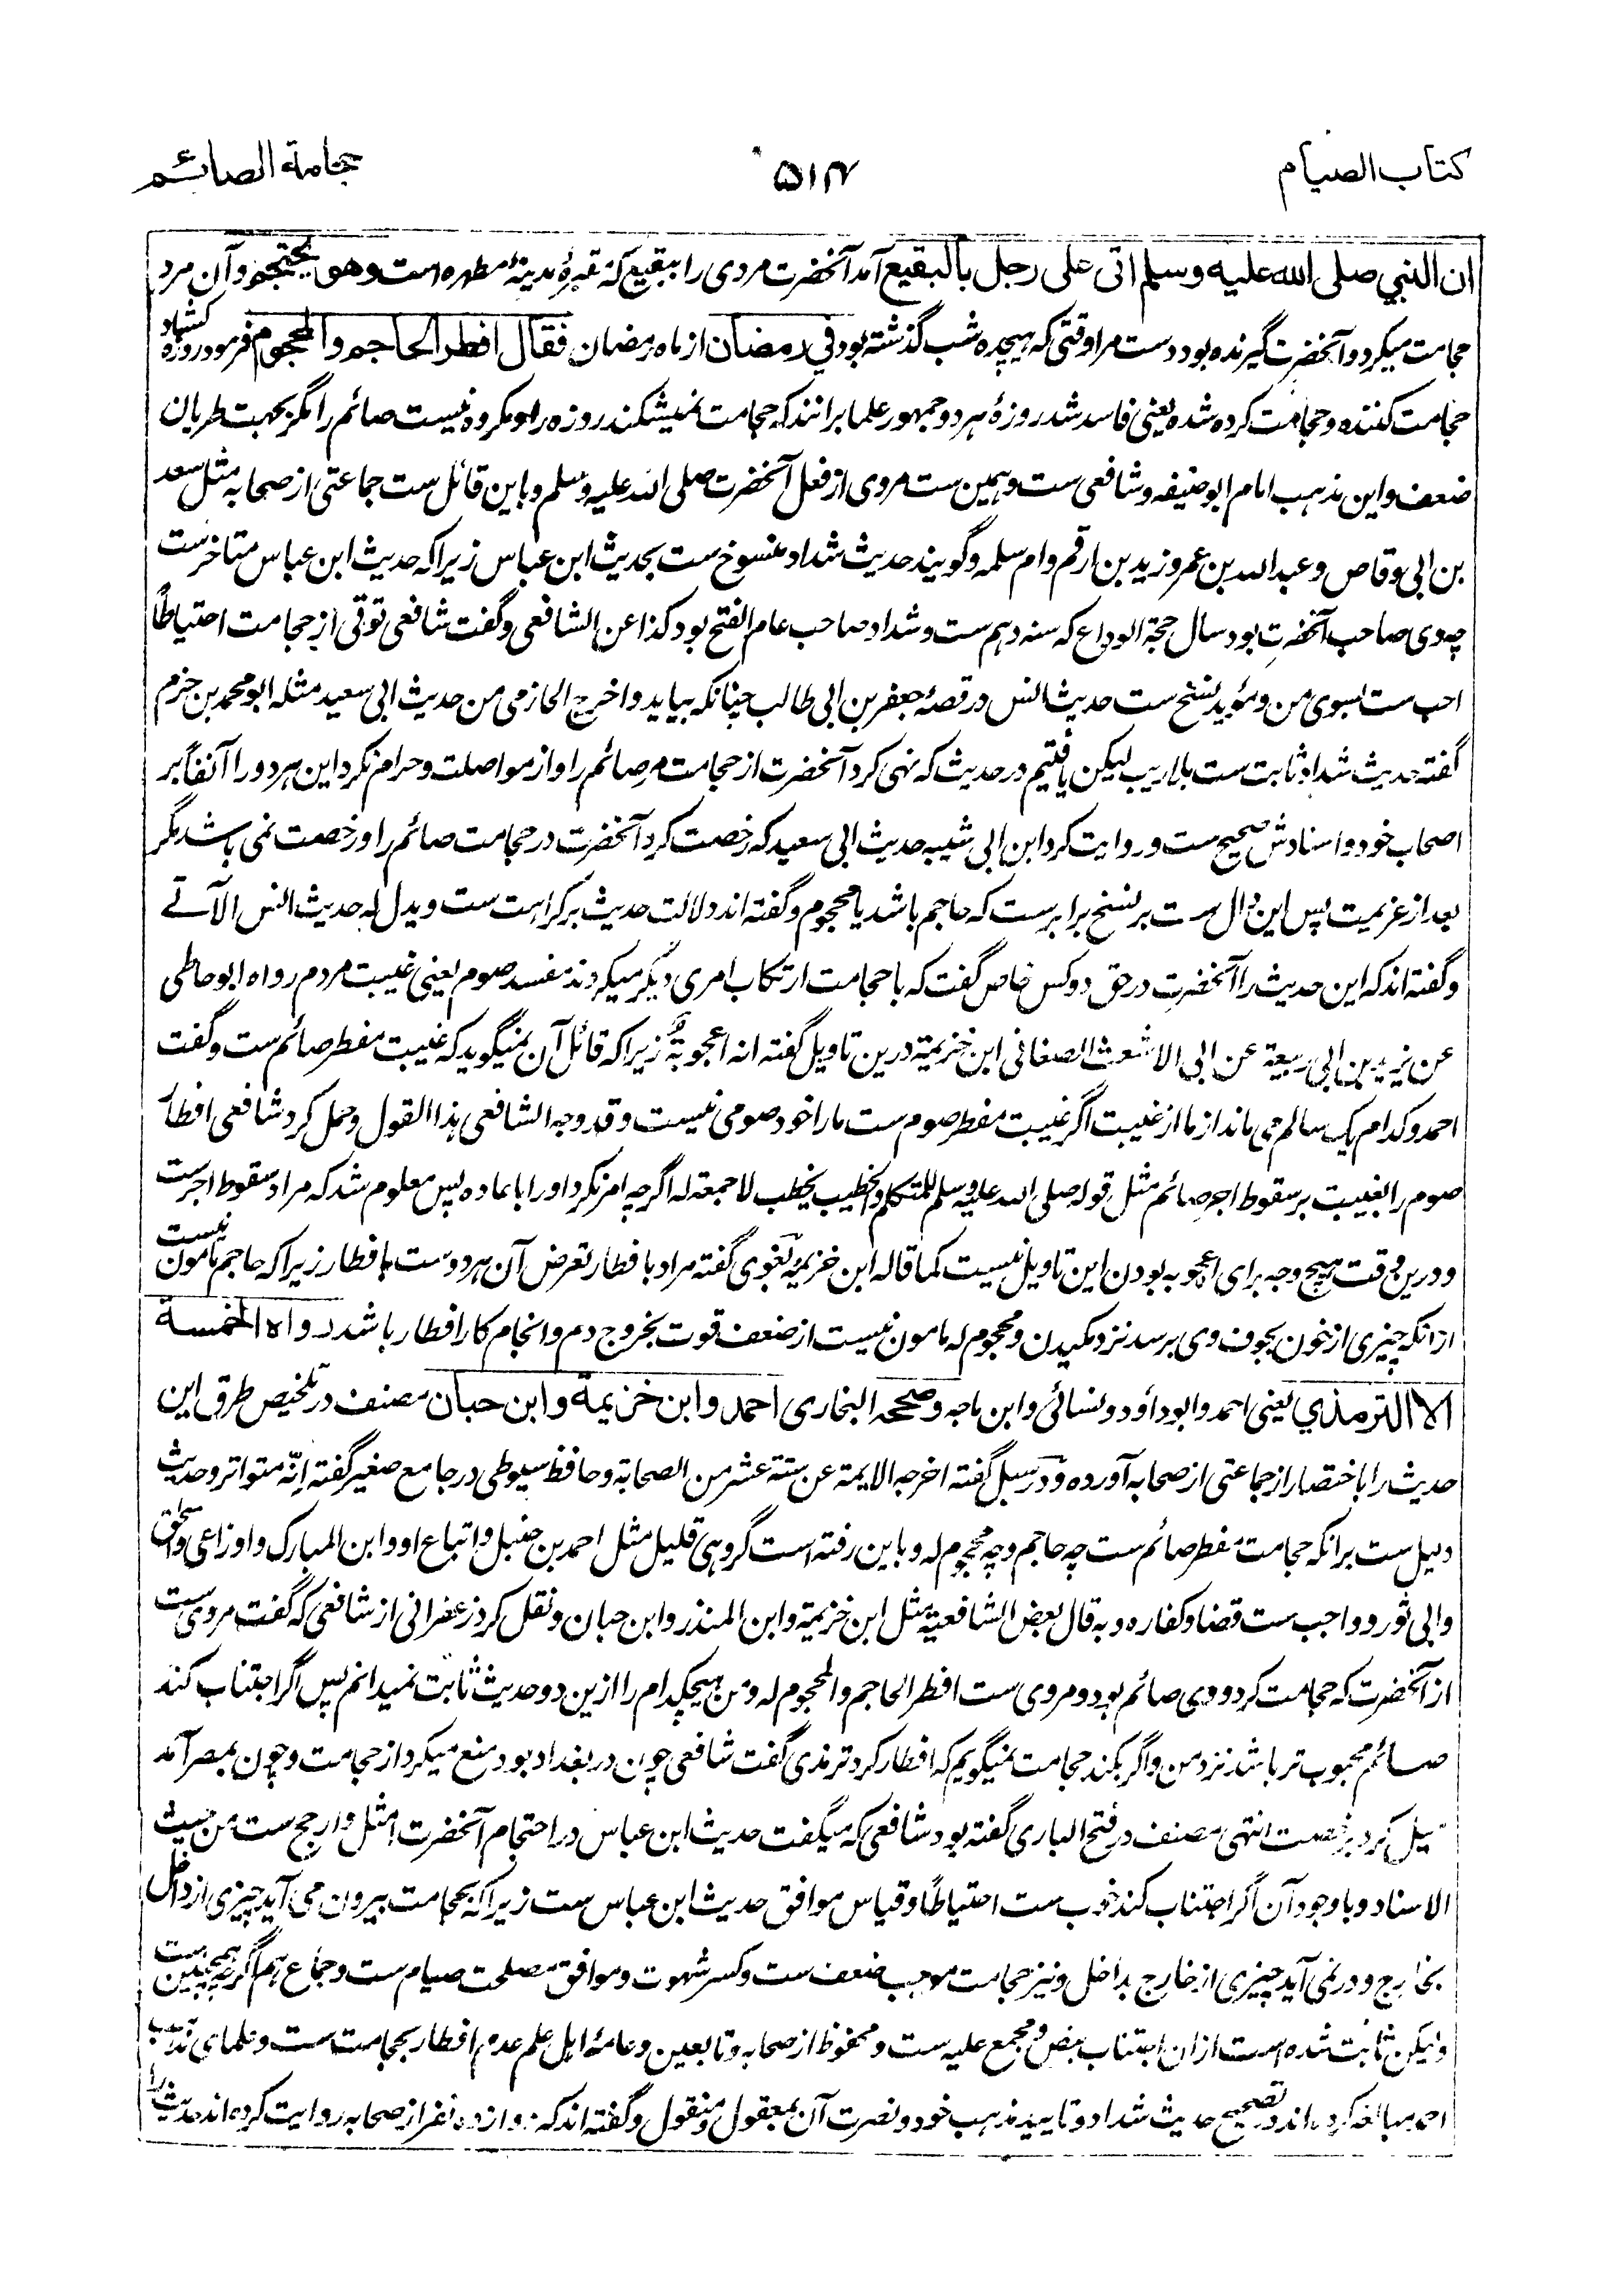 کتاب الصیام
۵۱۴
حجامة الصائم
ان النبي صلی الله علیه وسلم اتی علی رجل بالبقیع آمد آنحضرت مردی را ببقیع که مقبرهٔ مدینهٔ مطهره است وهو یحتجم و آن مرد
حجامت میکرد و آنحضرت گیرنده بود دست مرا وقتی که هیچده شب گذشته بود في رمضان از ماه رمضان فقال افطر الحاجم والمحجوم فرمود روزه کشاد
حجامت کننده و حجامت کرده شده یعنی فاسد شد روزهٔ هر دو جمهور علما برانند که حجامت نمیشکند روزه را و مکروه نیست صائم را مگر بجهت طریان
ضعف و این مذهب امام ابوحنیفه و شافعی ست و همین ست مروی از فعل آنحضرت صلی الله علیه وسلم و باین قائل ست جماعتی از صحابه مثل سعد
بن ابی وقاص و عبدالله بن عمر و زید بن ارقم و ام سلمه و گویند حدیث شداد منسوخ ست بحدیث ابن عباس زیراکه حدیث ابن عباس متاخرست
چه وی صاحب آنحضرت بود سال حجة الوداع که سنه دهم ست و شداد صاحب عام الفتح بود کذا عن الشافعی و گفت شافعی توقی از حجامت احتیاطاً
احب ست بسوی من و مؤید نسخ ست حدیث انس در قصهٔ جعفر بن ابی طالب چنانکه بیاید و اخرج الحازمی من حدیث ابی سعید مثله ابومحمد بن حزم
گفته حدیث شداد ثابت ست بلاریب لیکن یافتیم در حدیث که نهی کرد آنحضرت از حجامت مر صائم را و از مواصلت و حرام نکرد این هر دو را آنفاً بر
اصحاب خود و اسنادش صحیح ست و روایت کرد ابن ابی شیبه حدیث ابی سعید که رخصت کرد آنحضرت در حجامت صائم را و رخصت نمی باشد مگر
بعد از عزیمت پس این دال ست بر نسخ برابرست که حاجم باشد یا محجوم و گفته اند دلالت حدیث بر کراهت ست و یدل له حدیث انس الآتے
و گفته اند که این حدیث را آنحضرت در حق دو کس خاص گفت که با حجامت ارتکاب امری دیگر میکردند مفسد صوم یعنی غیبت مردم رواه ابوحاطی
عن یزید بن ابی ربیعة عن ابی الاشعث الصنعانی ابن خزیمة درین تاویل گفته انه اعجوبة زیراکه قائل آن نمیگوید که غیبت مفطر صائم ست و گفت
احمد و کدام یک سالم می ماند از ما از غیبت اگر غیبت مفطر صوم ست ما را خود صومی نیست و قد وجه الشافعی هذا القول و حمل کرد شافعی افطار
صوم را بغیبت بر سقوط اجر صائم مثل قوله صلی الله علیه وسلم للمتکلم والخطیب یخطب لا جمعة له اگرچه امر نکرد او را باعاده پس معلوم شد که مراد سقوط اجرست
و درین وقت هیچ وجه برای اعجوبه بودن این تاویل نیست کما قاله ابن خزیمة بغوی گفته مراد بافطار تعرض آن هر دوست بافطار زیراکه حاجم مامون نیست
از آنکه چیزی از خون بجوف وی برسد نزد مکیدن و محجوم له مامون نیست از ضعف قوت بخروج دم و انجام کار افطار باشد رواه الخمسة
الا الترمذي یعنی احمد و ابوداؤد و نسائی و ابن ماجه وصححه البخاری احمد وابن خزیمة وابن حبان مصنف در تلخیص طرق این
حدیث را باختصار از جماعتی از صحابه آورده و در سبل گفته اخرجه الایمة عن ستة عشر من الصحابة و حافظ سیوطی در جامع صغیر گفته انّه متواتر و حدیث
دلیل ست برانکه حجامت مفطر صائم ست چه حاجم و چه محجوم له و باین رفته است گروهی قلیل مثل احمد بن حنبل و اتباع او و ابن المبارک و اوزاعی و اسحق
و ابی ثور و واجب ست قضا و کفاره و به قال بعض الشافعیة مثل ابن خزیمة و ابن المنذر و ابن حبان و نقل کرد زعفرانی از شافعی که گفت مروی ست
از آنحضرت که حجامت کرد و وی صائم بود و مروی ست افطر الحاجم والمحجوم له و من هیچکدام را ازین دو حدیث ثابت نمیدانم پس اگر اجتناب کند
صائم محبوب تر باشد نزد من و اگر بکند حجامت نمیگویم که افطار کرد ترمذی گفت شافعی چون در بغداد بود منع میکرد از حجامت و چون بمصر آمد
میل کرد برخصت انتهی مصنف در فتح الباری گفته بود شافعی که میگفت حدیث ابن عباس در احتجام آنحضرت امثل و ارجح ست من حیث
الاسناد و با وجود آن اگر اجتناب کند خوب ست احتیاطاً و قیاس موافق حدیث ابن عباس ست زیراکه بحجامت بیرون می آید چیزی از داخل
بخارج و در نمی آید چیزی از خارج بداخل و نیز حجامت موجب ضعف ست و کسر شهوت و موافق مصلحت صیام ست و جماع هم اگرچه همچنین ست
ولیکن ثابت شده است ازان اجتناب بنص و مجمع علیه ست و محفوظ از صحابه و تابعین و عامهٔ اهل علم عدم افطار بحجامت ست و علمای مذهب
احمد مبالغه کرده اند در تصحیح حدیث شداد و تایید مذهب خود و نصرت آن بمعقول و منقول و گفته اند که دوازده نفر از صحابه روایت کرده اند حدیث را